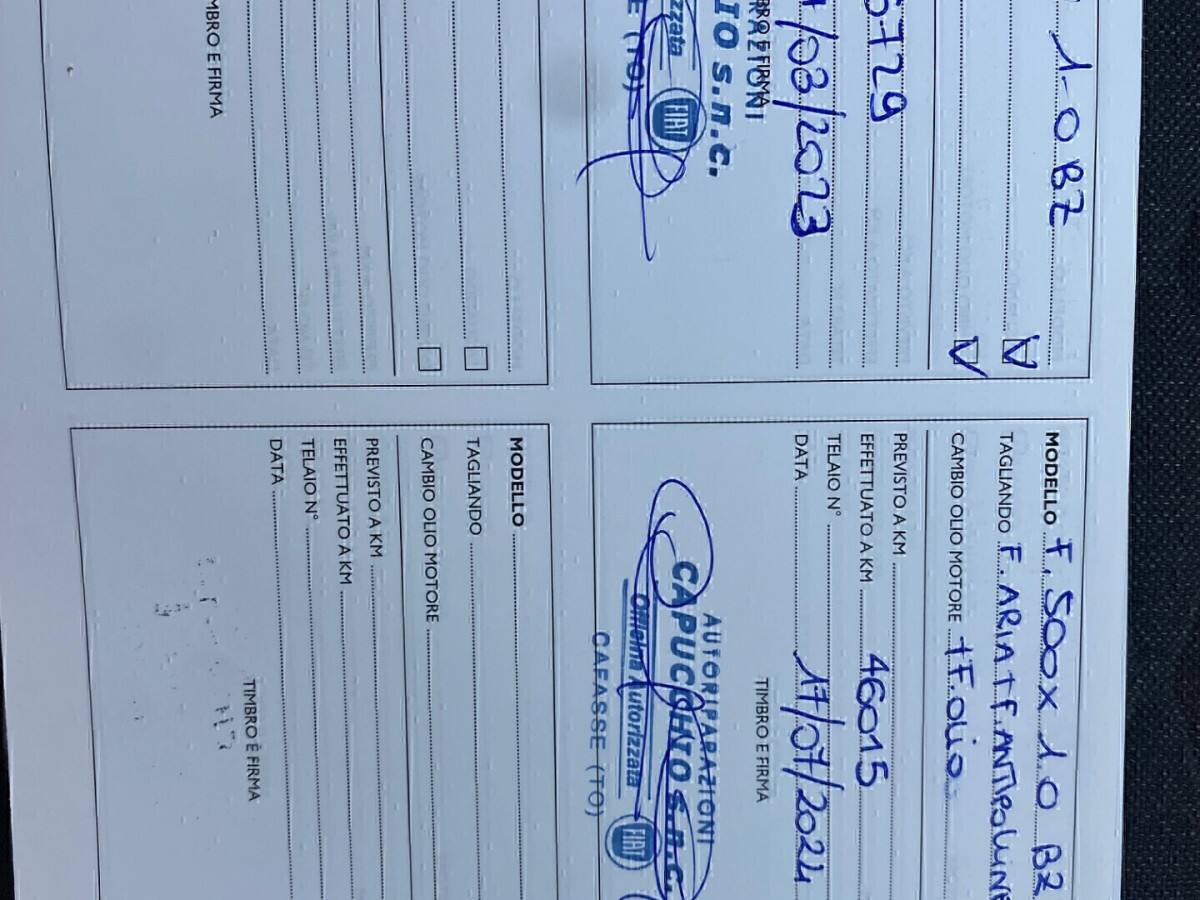 1.0 BZ
V
V
6729
/03/2023
TIMBRO E FIRMA
RAZIONI
IO s.n.c.
zzata
FIAT
E (TO)
TIMBRO E FIRMA
MODELLO F. 500X 1.0 BZ
TAGLIANDO F. ARIA + F. ANTIPOLLINE
CAMBIO OLIO MOTORE + F. OLIO
PREVISTO A KM
EFFETTUATO A KM 46015
TELAIO N°
DATA 17/07/2024
TIMBRO E FIRMA
AUTORIPARAZIONI
CAPUCCHIO s.n.c.
Officina Autorizzata
FIAT
CAFASSE (TO)
MODELLO
TAGLIANDO
CAMBIO OLIO MOTORE
PREVISTO A KM
EFFETTUATO A KM
TELAIO N°
DATA
TIMBRO E FIRMA